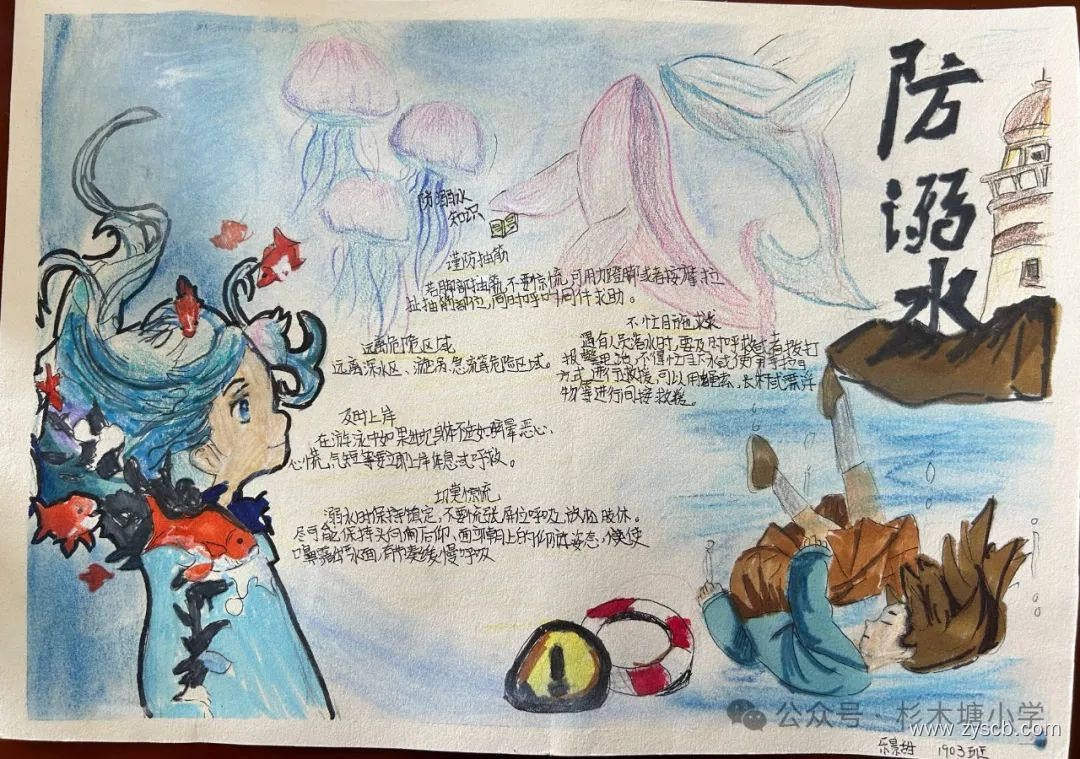 防溺水
防溺水
知识
谨防抽筋
若脚部抽筋,不要惊慌,可用力蹬脚或者按摩拉
扯抽筋部位,同时呼叫同伴求助。
远离危险区域
远离深水区、漩涡、急流等危险区域。
不盲目施救
遇有人员落水时,要及时呼救或者拨打
报警电话,不值盲目下水或使用手拉手
方式进行救援,可以用绳索,长杆或漂浮
物等进行间接救援。
及时上岸
在游泳中如果出现身体不适如眩晕恶心、
心慌,气短等要立即上岸休息或呼救。
切莫惊慌
溺水时保持镇定,不要慌张,屏住呼吸,放松肢体。
尽可能保持头向后仰、面部朝上的仰泳姿态,使
口鼻露出水面,有节奏缓慢呼吸
1903班
公众号·杉木塘小学
www.zyscb.com